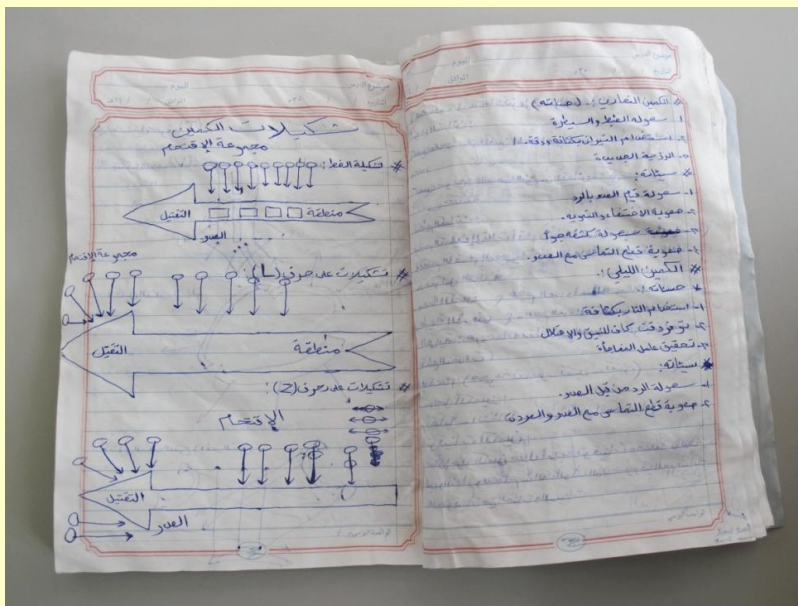 موضوع الدرس
اليوم
التاريخ
الموافق
تشكيلات الكمين
مجموعة الإقتحام
* تشكيلة الخط:
منطقة
التقتيل
العدو
مجموعة الإقتحام
* تشكيلات على حرف (L):
منطقة
التقتيل
* تشكيلات على حرف (Z):
الإقتحام
التقتيل
العدو
موضوع الدرس
اليوم
التاريخ
الموافق
* الكمين النهاري: (حسناته)
١- سهولة الضبط والسيطرة
٢- استخدام النيران بكثافة ودقة.
٣- الرؤية الجيدة
* سيئاته:
١- سهولة قيام العدو بالرد
٢- صعوبة الاختفاء والتمويه.
٣- سهولة كشفه جواً.
٤- صعوبة قطع التماس مع العدو.
* الكمين الليلي:
* حسناته:
١- استخدام النار بكثافة.
٢- وقت كاف
٣- تحقيق عامل المفاجأة.
* سيئاته:
١- سهولة الرد من قبل العدو.
٢- صعوبة قطع التماس مع العدو والعودة